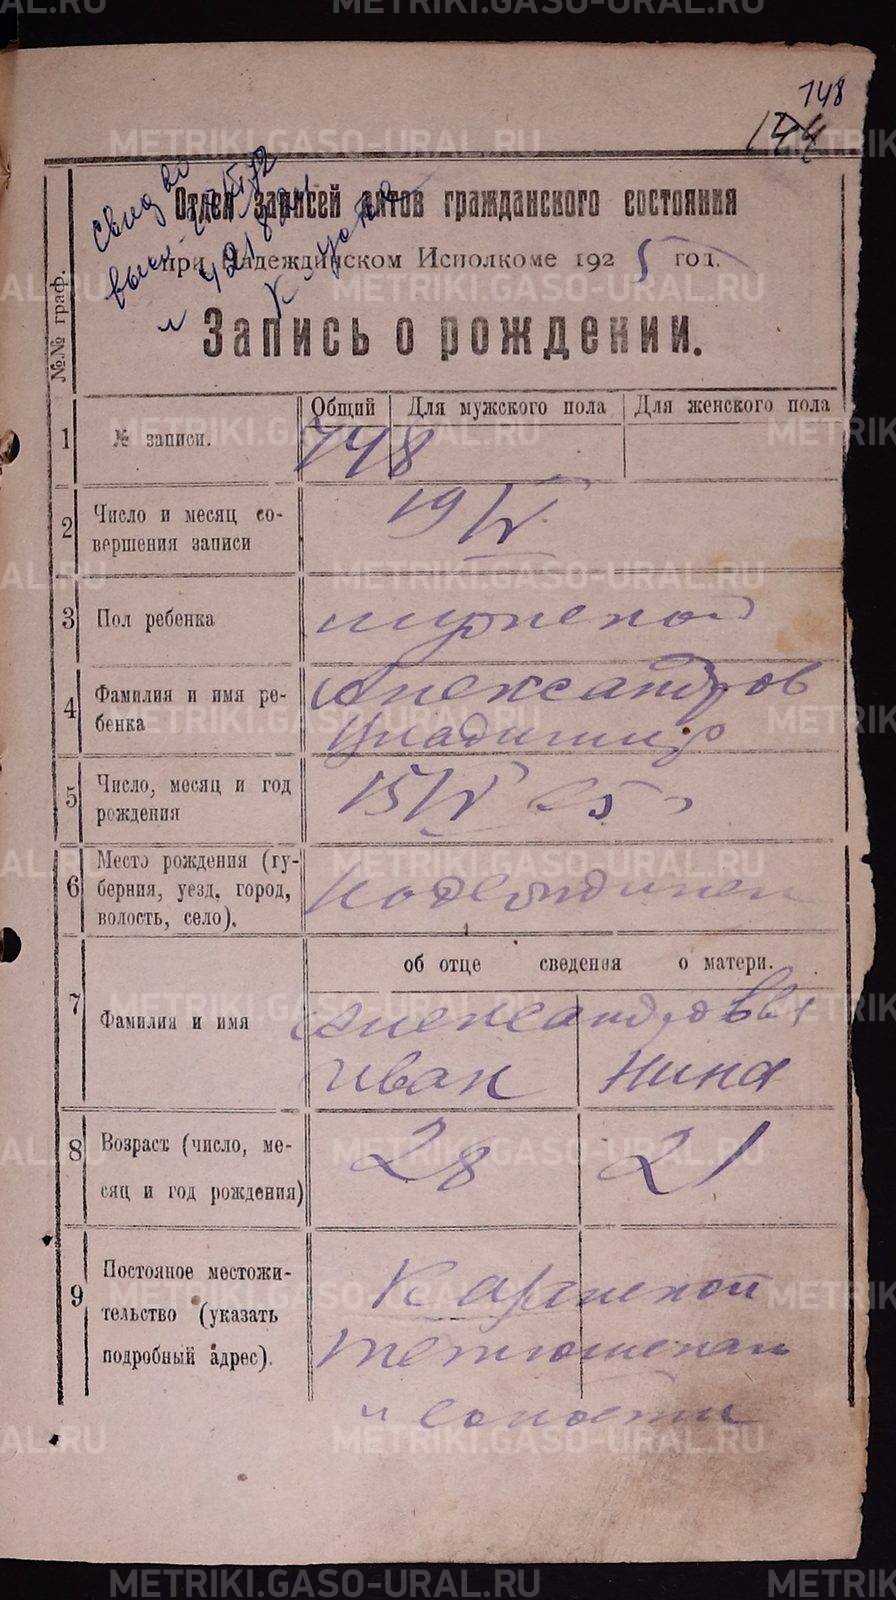 METRIKI.GASO-URAL.RU
148
144
свид во
Отдел записей актов гражданского состояния
при Надеждинском Исполкоме 1925 год.
Запись о рождении.
№№ граф.
Общий | Для мужского пола | Для женского пола
1 № записи. 748
2 Число и месяц со-
вершения записи
19/V
3 Пол ребенка мужской
4 Фамилия и имя ре-
бенка
Александров
Владимир
5 Число, месяц и год
рождения
15/V 25 г
6 Место рождения (гу-
берния, уезд, город,
волость, село).
об отце сведения о матери.
7 Фамилия и имя
Александровы
Иван Нина
8 Возраст (число, ме-
сяц и год рождения)
28 21
9 Постояное местожи-
тельство (указать
подробный адрес).
области